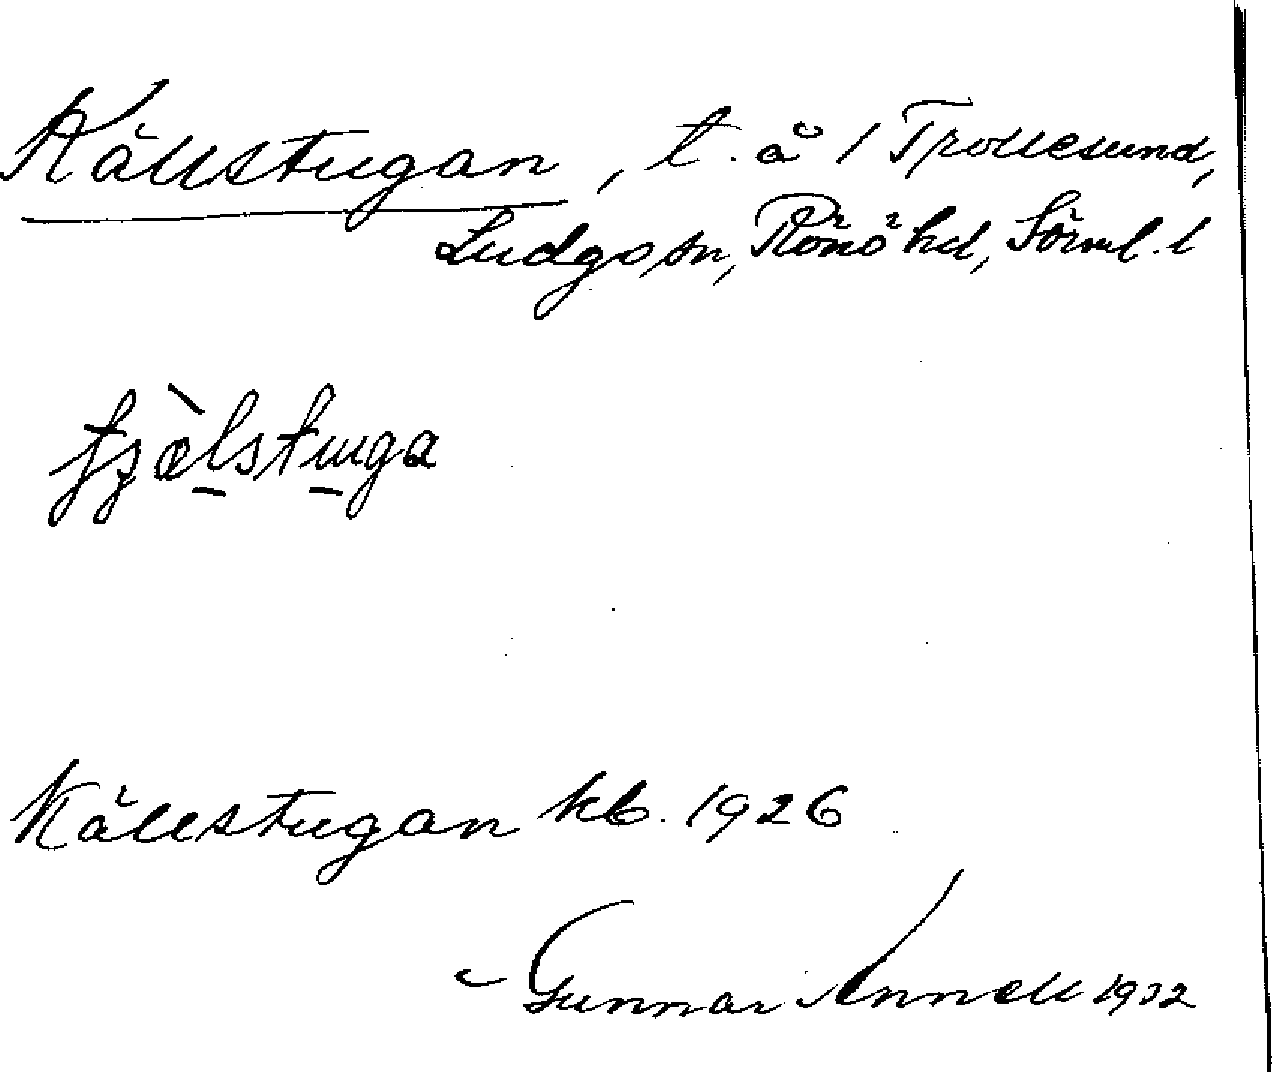 Källstugan, t. å 1 Trollesund,
Ludgo sn, Rönö hd, Sörml. l
Källstugan kb. 1926
Gunnar Annell 1932